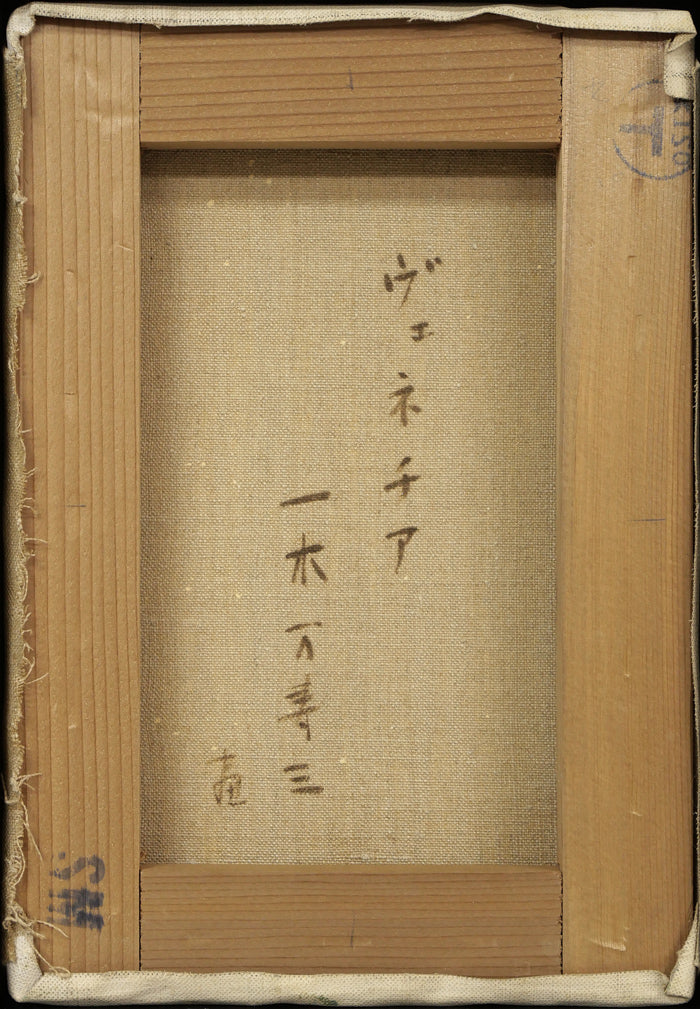 ヴェネチア
一木万寿三
画
SM